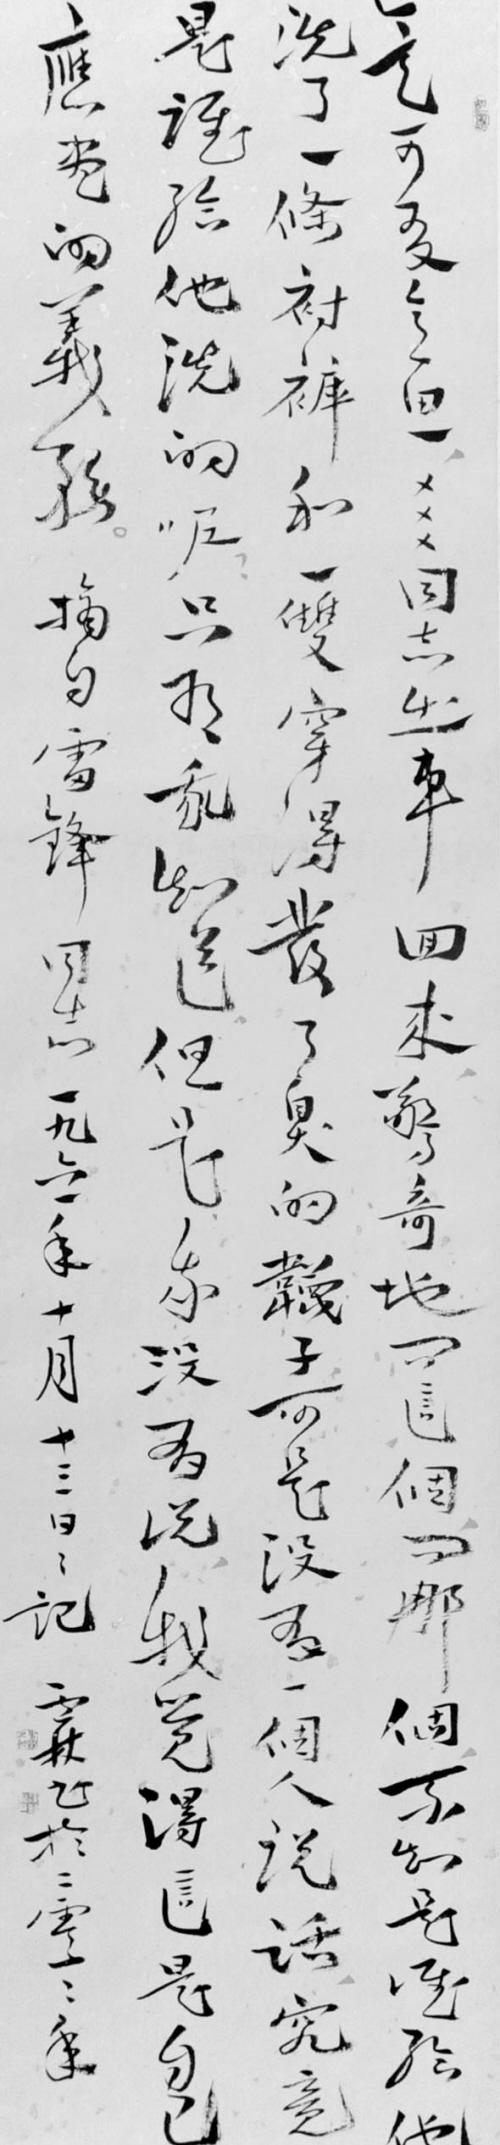 真可有意思×××同志出車回來驚奇地問這個問那個不知是誰給他
洗了一條襯褲和一雙穿得發了臭的襪子可是沒有一個人說話究竟
是誰給他洗的呢只有我知道但是我沒有說我覺得這是自己
應盡的義務。摘自雷鋒同志一九六一年十月十三日日記 於二零一二年